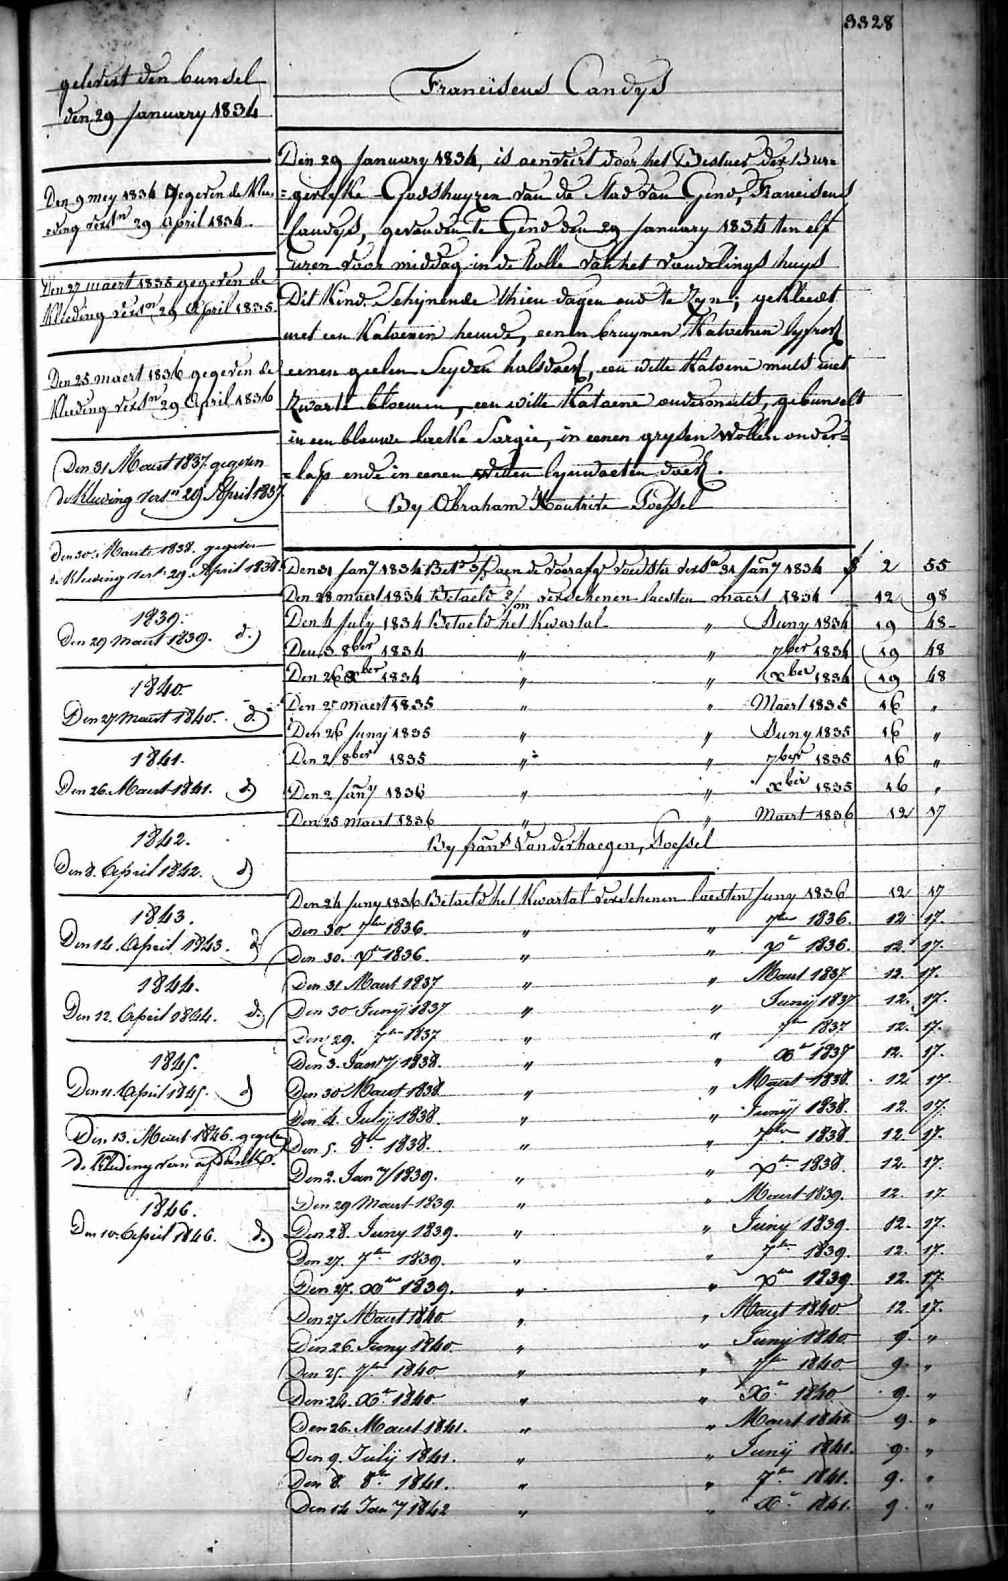 3328
gelevert den bunsel
den 29 January 1834
Den 9 mey 1834 gegeven de klee-
eding versn 29 April 1834.
Den 27 maert 1835 gegeven de
kleeding versn 29 April 1835.
Den 25 maert 1836 gegeven de
kleeding versn 29 April 1836
Den 31 Maert 1837 gegeven
de kleeding versn 29 April 1837
Den 30. Maerte 1838. gegeven
de kleeding vers. 29 April 1838.
1839.
Den 29 Maert 1839. d.)
1840
Den 27 Maert 1840. d.)
1841.
Den 26. Maert 1841. d)
1842.
Den 8. April 1842. d)
1843.
Den 14. April 1843. d.
1844.
Den 12. April 1844. d.)
1845.
Den 11. April 1845. d)
Den 13. Meert 1846. gegeven
de kleeding van
1846.
Den 10. April 1846. d.)
Franciscus Candys
Den 29 January 1834, is aenveirt door het Bestuer der Bur=
=gerlyke Godshuyzen van de Stad van Gend, Franciscus
Candys, gevonden te Gend den 29 January 1834 ten elf
uren voor middag in de Rolle van het vondelings huys
Dit Kind Schijnende thien dagen oud te Zyn; gekleedt
met een Katoenen hemde, eenen bruynen Katoenen lyfrok
eenen geelen Seyden halsdoek, een witte Katoene muts met
Zwarte bloemen, een witte Katoene ondermuts, gebunselt
in een blauwe lacke Sargie, in eenen grysen Wollen onder=
=lap ende in eenen witten lynwaeten doek.
By Abraham Houtrite Poessel
Den 31 Jany 1834 Bete aen de voorafge voedster versn 31 Jany 1834 f 2 55
Den 28 maert 1834 Betaeld verschenen laesten maert 1834 12 98
Den 4 July 1834 Betaeld het Kwartal " Juny 1834 19 48
Den 3 8ber 1834 " " 7ber 1834 19 48
Den 26 xber 1834 " " xber 1834 19 48
Den 27 maert 1835 " " Maert 1835 16 "
Den 26 Juny 1835 " " Juny 1835 16 "
Den 2 8ber 1835 " " 7ber 1835 16 "
Den 2 Jany 1836 " " xber 1835 16 "
Den 25 maert 1836 " " Maert 1836 12 17
By frans Vanderhaegen, Poessel
Den 24 Juny 1836 Betaeld het Kwartal verschenen laesten Juny 1836 12 17
Den 30 7ber 1836. " " 7ber 1836. 12 17.
Den 30. xr 1836. " " xr 1836. 12. 17.
Den 31 Maert 1837 " " Maert 1837. 12. 17.
Den 30 Junij 1837 " " Junij 1837 12. 17.
Den 29. 7ber 1837 " " 7ber 1837 12. 17.
Den 3. Jany 1838. " " Xr 1837 12. 17.
Den 30 Maert 1838 " " Maert 1838. 12 17.
Den 4. Julij 1838. " " Junij 1838. 12. 17.
Den 5. 8r 1838. " " 7ber 1838 12. 17.
Den 2. Jany 1839. " " xber 1838. 12. 17.
Den 29 Maert 1839 " " Maert 1839. 12. 17.
Den 28. Juny 1839. " " Juny 1839. 12. 17.
Den 27. 7ber 1839. " " 7ber 1839. 12. 17.
Den 27. Xber 1839. " " xber 1839 12. 17.
Den 27 Maert 1840 " " Maert 1840 12. 17.
Den 26. Juny 1840. " " Juny 1840 9. "
Den 25. 7ber 1840 " " 7ber 1840 9. "
Den 24. Xr 1840 " " Xr 1840 9. "
Den 26. Maert 1841. " " Maert 1841. 9. "
Den 9. Julij 1841. " " Junij 1841. 9. "
Den 8. 8r 1841. " " 7r 1841. 9. "
Den 14 Jany 1842 " " Xr 1841. 9. "